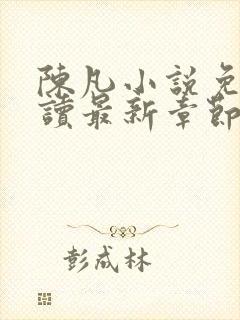 陳凡小說免
讀最新章節
彭成林